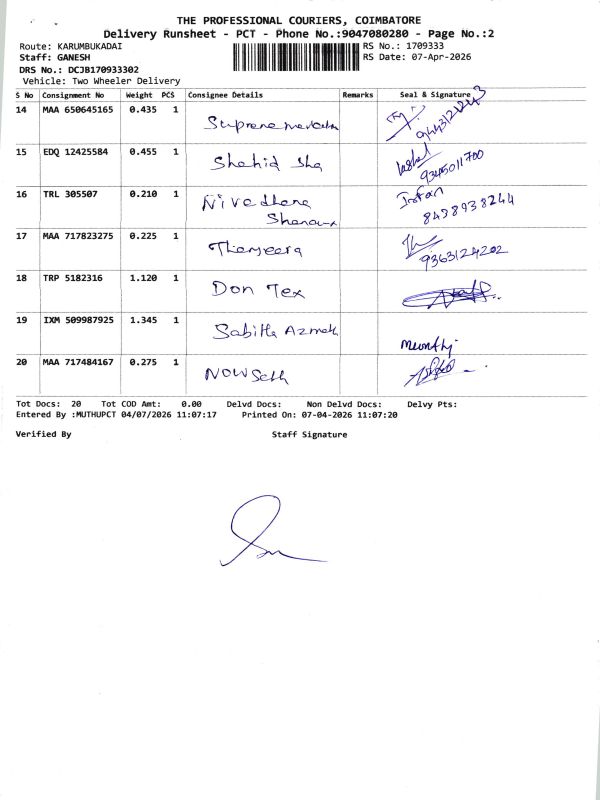 THE PROFESSIONAL COURIERS, COIMBATORE
Delivery Runsheet - PCT - Phone No.:9047080280 - Page No.:2
Route: KARUMBUKADAI
RS No.: 1709333
Staff: GANESH
RS Date: 07-Apr-2026
DRS No.: DCJB170933302
Vehicle: Two Wheeler Delivery
S No Consignment No Weight PCS Consignee Details Remarks Seal & Signature
14 MAA 650645165 0.435 1
15 EDQ 12425584 0.455 1 Shahid Sha 9345011700
16 TRL 305507 0.210 1 Nivedhana Irfan
8438938244
17 MAA 717823275 0.225 1 Thanjeera 9363124202
18 TRP 5182316 1.120 1 Don Tex
19 IXM 509987925 1.345 1 Sabitha
20 MAA 717484167 0.275 1
Tot Docs: 20 Tot COD Amt: 0.00 Delvd Docs: Non Delvd Docs: Delvy Pts:
Entered By :MUTHUPCT 04/07/2026 11:07:17 Printed On: 07-04-2026 11:07:20
Verified By Staff Signature